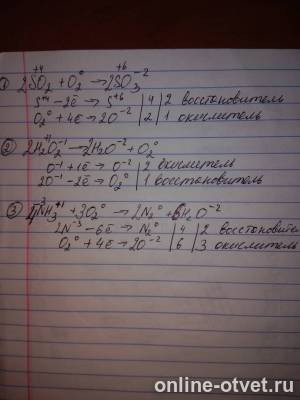 ① 2S⁺⁴O₂ + O₂⁰ → 2S⁺⁶O₃⁻²
S⁺⁴ - 2ē → S⁺⁶ | 4 | 2 восстановитель
O₂⁰ + 4ē → 2O⁻² | 2 | 1 окислитель
② 2H₂⁺¹O₂⁻¹ → 2H₂O⁻² + O₂⁰
O⁻¹ + 1ē → O⁻² | 2 окислитель
2O⁻¹ - 2ē → O₂⁰ | 1 восстановитель
③ 4N⁻³H₃⁺¹ + 3O₂⁰ → 2N₂⁰ + 6H₂O⁻²
2N⁻³ - 6ē → N₂⁰ | 4 | 2 восстановите
O₂⁰ + 4ē → 2O⁻² | 6 | 3 окислитель
online-otvet.ru